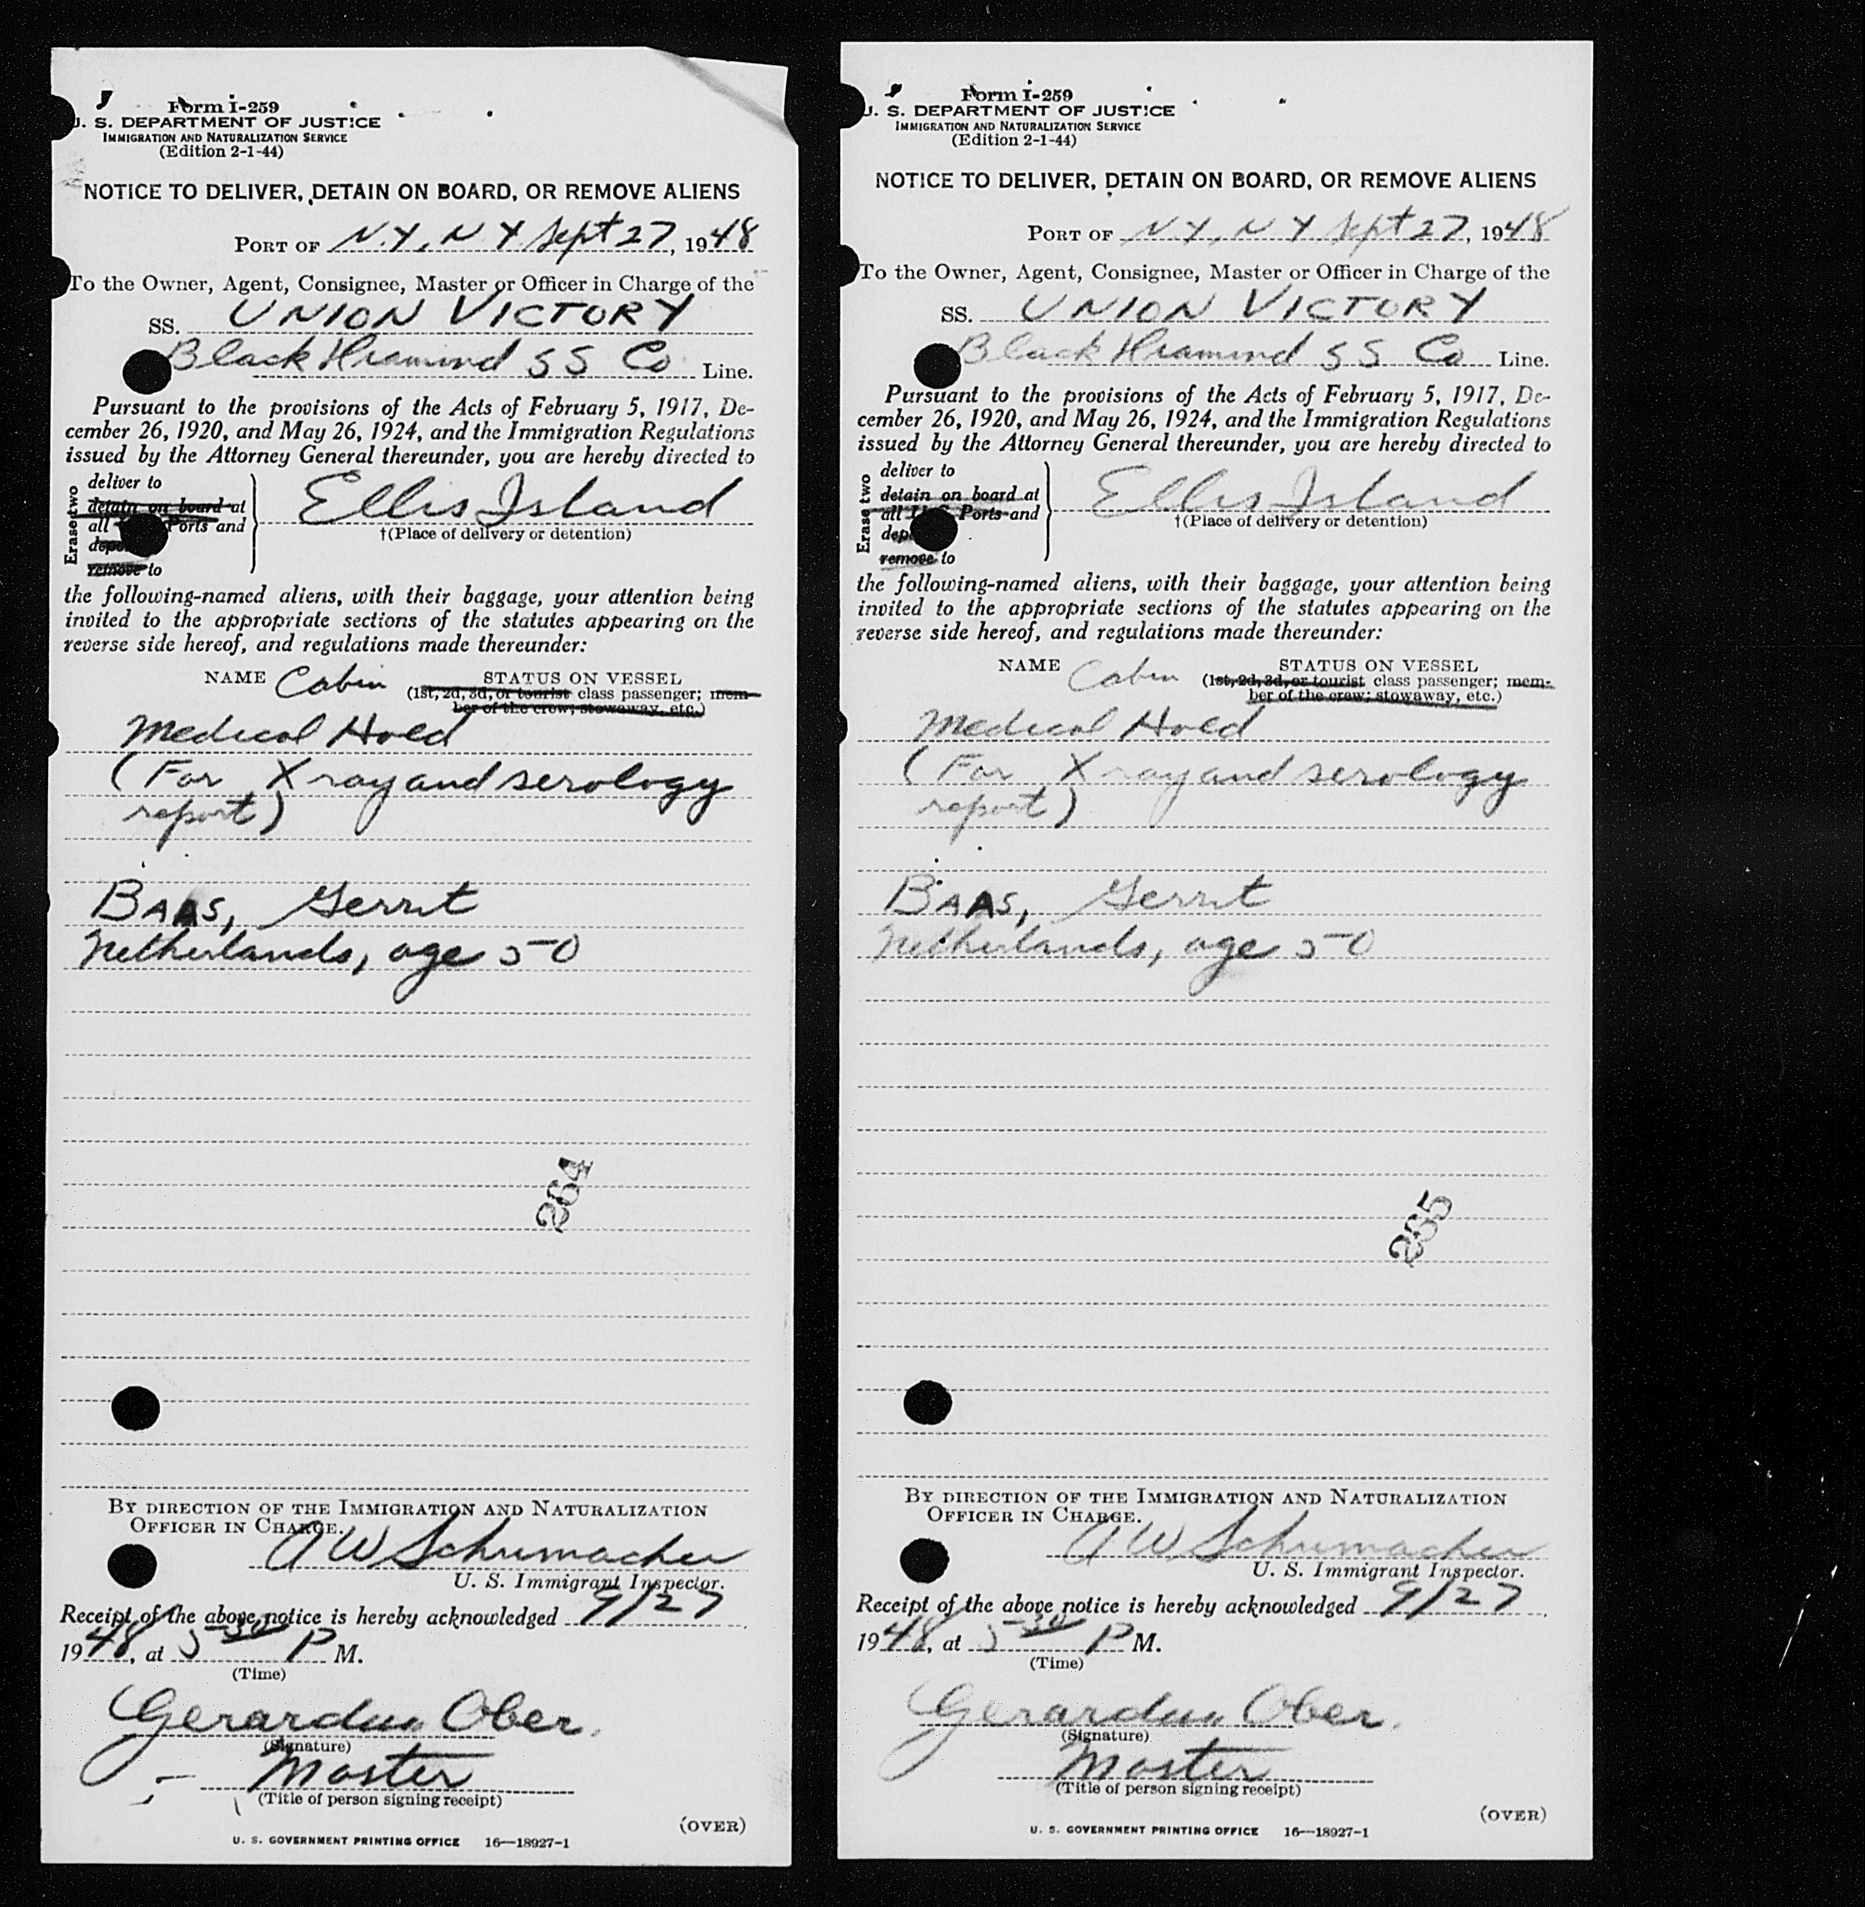 Form I-259
U. S. DEPARTMENT OF JUSTICE
IMMIGRATION AND NATURALIZATION SERVICE
(Edition 2-1-44)
NOTICE TO DELIVER, DETAIN ON BOARD, OR REMOVE ALIENS
PORT OF N.Y., N Y Sept 27, 1948
To the Owner, Agent, Consignee, Master or Officer in Charge of the
SS. UNION VICTORY
Black Diamond SS Co Line.
Pursuant to the provisions of the Acts of February 5, 1917, De-
cember 26, 1920, and May 26, 1924, and the Immigration Regulations
issued by the Attorney General thereunder, you are hereby directed to
Erase two
deliver to
detain on board at
all Ports and
remove to
Ellis Island
†(Place of delivery or detention)
the following-named aliens, with their baggage, your attention being
invited to the appropriate sections of the statutes appearing on the
reverse side hereof, and regulations made thereunder:
NAME Cabin STATUS ON VESSEL
(1st, 2d, 3d, or tourist class passenger; mem-
ber of the crew; stowaway, etc.)
Medical Hold
(For X ray and serology
report)
BAAS, Gerrit
Netherlands, age 50
264
BY DIRECTION OF THE IMMIGRATION AND NATURALIZATION
OFFICER IN CHARGE.
A W Schumacher
U. S. Immigrant Inspector.
Receipt of the above notice is hereby acknowledged 9/27
1948, at 5 30 P M.
(Time)
Gerardus Ober.
(Signature)
Master
(Title of person signing receipt)
(OVER)
U. S. GOVERNMENT PRINTING OFFICE 16—18927-1
Form I-259
U. S. DEPARTMENT OF JUSTICE
IMMIGRATION AND NATURALIZATION SERVICE
(Edition 2-1-44)
NOTICE TO DELIVER, DETAIN ON BOARD, OR REMOVE ALIENS
PORT OF N.Y., N Y Sept 27, 1948
To the Owner, Agent, Consignee, Master or Officer in Charge of the
SS. UNION VICTORY
Black Diamond SS Co Line.
Pursuant to the provisions of the Acts of February 5, 1917, De-
cember 26, 1920, and May 26, 1924, and the Immigration Regulations
issued by the Attorney General thereunder, you are hereby directed to
Erase two
deliver to
detain on board at
all U S Ports and
remove to
Ellis Island
†(Place of delivery or detention)
the following-named aliens, with their baggage, your attention being
invited to the appropriate sections of the statutes appearing on the
reverse side hereof, and regulations made thereunder:
NAME Cabin STATUS ON VESSEL
(1st, 2d, 3d, or tourist class passenger; mem-
ber of the crew; stowaway, etc.)
Medical Hold
(For X ray and serology
report)
BAAS, Gerrit
Netherlands, age 50
265
BY DIRECTION OF THE IMMIGRATION AND NATURALIZATION
OFFICER IN CHARGE.
A W. Schumacher
U. S. Immigrant Inspector.
Receipt of the above notice is hereby acknowledged 9/27
1948, at 5 30 P M.
(Time)
Gerardus Ober.
(Signature)
Master
(Title of person signing receipt)
(OVER)
U. S. GOVERNMENT PRINTING OFFICE 16—18927-1